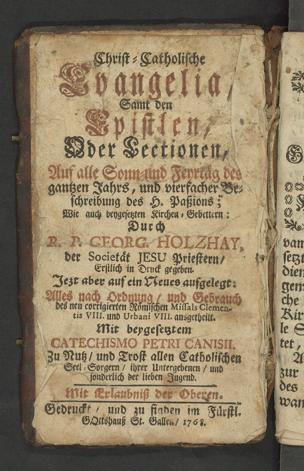 Christ-Catholische
Evangelia/
Samt den
Epistlen/
Oder Lectionen/
Auf alle Sonn- und Feyrtäg des
gantzen Jahrs, und vierfacher Be-
schreibung des H. Paßions;
Wie auch beygesetzten Kirchen-Gebettern:
Durch
R. P. GEORG. HOLZHAY,
der Societät JESU Priestern/
Erstlich in Druck gegeben.
Jezt aber auf ein Neues aufgelegt:
Alles nach Ordnung/ und Gebrauch
des neu corrigierten Römischen Missals Clemen-
tis VIII. und Urbani VIII. ausgetheilt.
Mit beygesetztem
CATECHISMO PETRI CANISII.
Zu Nutz/ und Trost allen Catholischen
Seel-Sorgern/ ihrer Untergebenen/ und
sonderlich der lieben Jugend.
Mit Erlaubniß der Oberen.
Gedruckt/ und zu finden im Fürstl.
G.Ottshauß St. Gallen/ 1768.